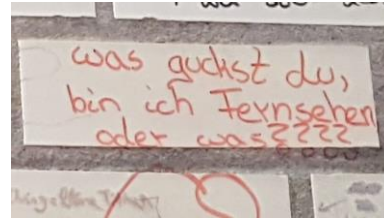 was guckst du,
bin ich Fernsehen
oder was????